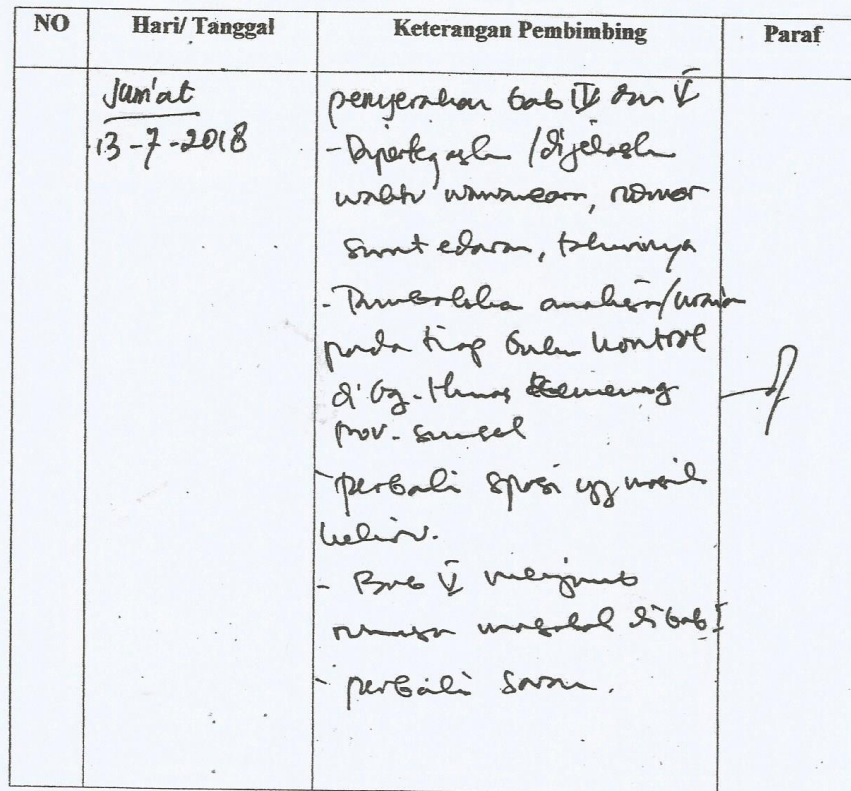 NO Hari/ Tanggal Keterangan Pembimbing Paraf
Jum'at
13-7-2018
penyerahan bab IV dan V
- Dipertegaskan / dijelaskan
waktu wawancara, nomor
surat edaran, tahunnya
- Tambahkan analisa/uraian
pada tiap
kontrol
di Bg. Humas Kemenag
prov. sumsel
- perbaiki spasi yg masih
keliru.
- Bab V menjawab
rumusan masalah di bab I
- perbaiki saran.